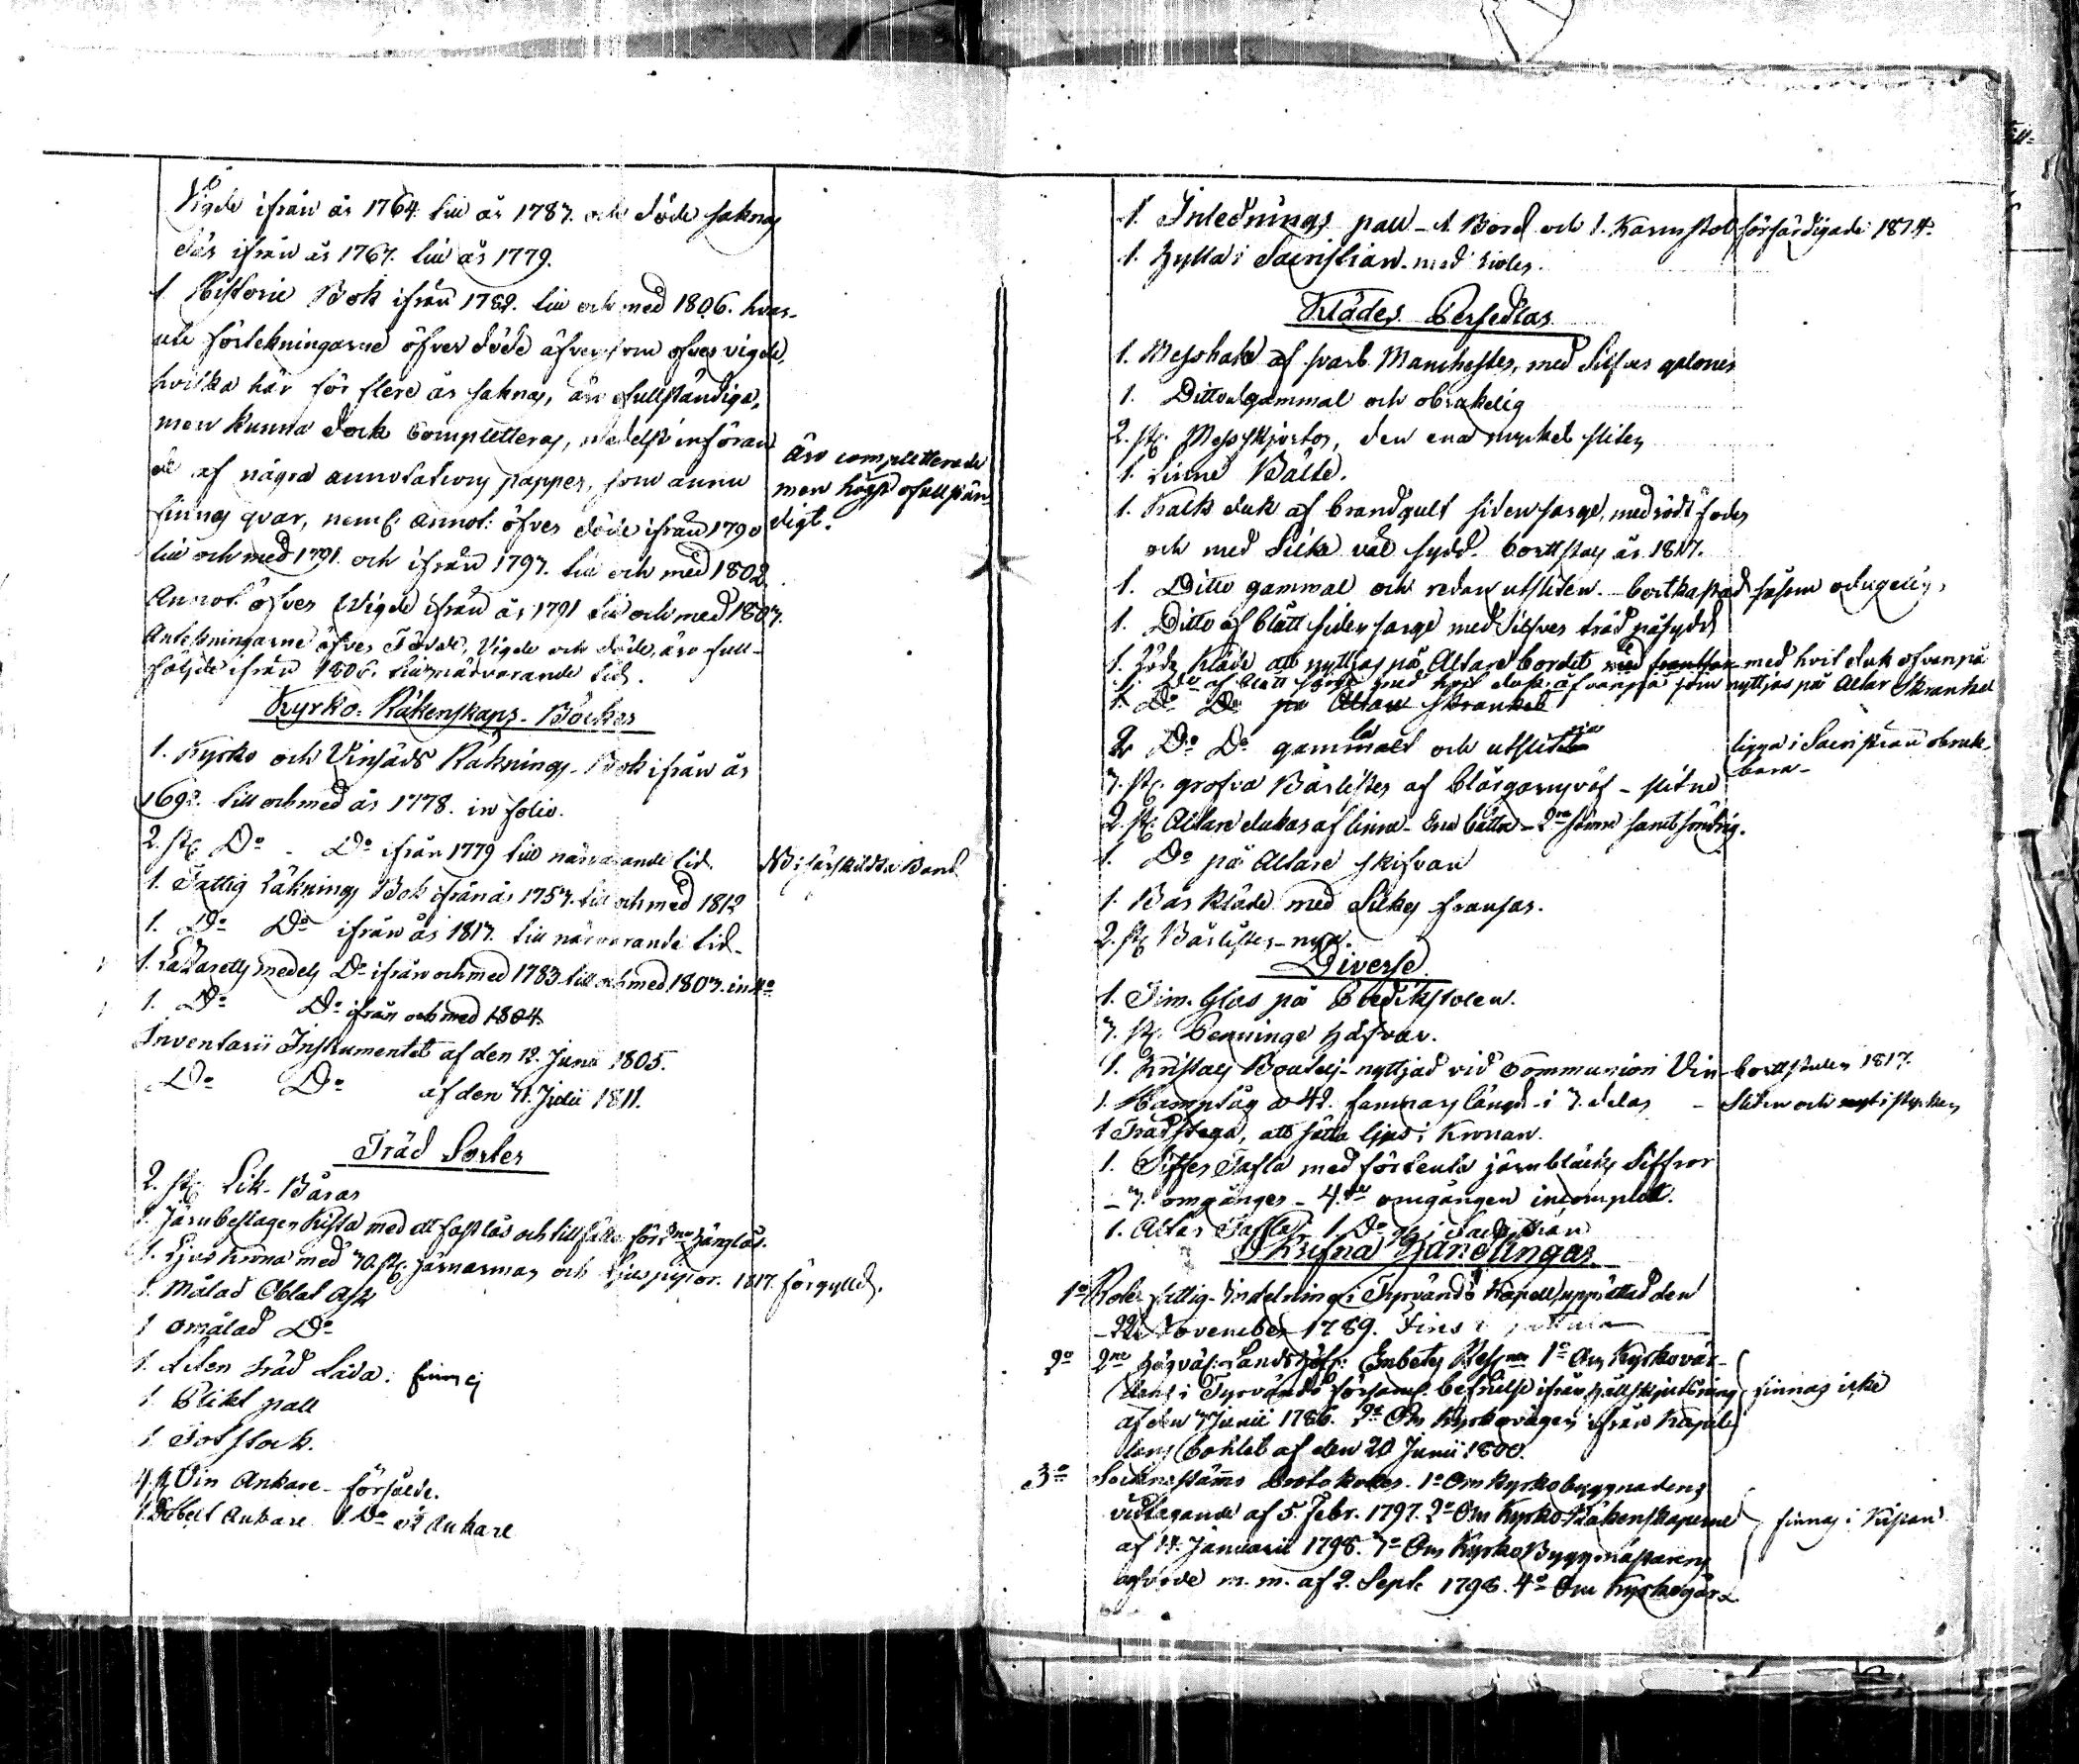 Vigde ifrån år 1764. till år 1787. och döde saknas
der ifrån år 1767. till år 1779.
1. Historie Bok ifrån 1782. till och med 1806. hvar-
uti förtekningarne öfver döde äfvensom öfver vigde,
hvilka här för flere år saknas, äro ofullständiga,
men kunna dock Completteras, medelst införan
de af några annotations papper, som ännu
finnas qvar, neml: Annot: öfver döde ifrån 1790
till och med 1791. och ifrån 1797. till och med 1802
Annot. öfver Vigde ifrån år 1791 till och med 1807.
Antekningarne öfver Födde, Vigde och döde, äro full-
följde ifrån 1806. till närvarande tid.
Äro completterade
men högst ofullstän-
digt.
Kyrko-Räkenskaps-Böcker
1. Kyrko och Vinsäds Räknings-Bok ifrån år
1693. till och med år 1778. in folio.
2. st: Do - Do ifrån 1779 till närvarande tid. NB i särskildta Band
1. Fattig Räknings Bok ifrån år 1757. till och med 1812
1. Do Do ifrån år 1817. till närvarande tid.
1. Lazaretts medels Do ifrån och med 1783 till och med 1807. in 4to
1. Do Do ifrån och med 1804.
Inventarii Instrumentet af den 12. Junii 1805.
Do Do af den 71. Julii 1811.
Träd Sorter
2. st: Lik-Bårar
1. Järnbeslagen Kista med ett fast lås och tillfälle för 2ne hänglås.
1. Ljus Krona med 70. st: Järnarmar och Ljuspipor. 1817. förgylld.
1. Målad Oblat Ask
1 omålad Do
1. Liten Träd Låda. finns ej
1 Plikt pall
1. Fotstock.
4. st Vin Ankare - försålde.
1. Dobbelt Ankare 1. Do et Ankare
1. Inlednings pall - 1. Bord och 1. Karmstol förfärdigade 1874.
1. Hylla i Sacristian med
Klädes Persedlar
1. Messhake af svart Manchester, med Silfver galoner
1. Ditto gammal och obrukelig
2. st: Messkjortor, den ena mycket sliten
1. Linne Bälte.
1. Kalk duk af brandgult sidensarge, med rödt foder
och med Silke väl sydd. bortstals år 1817.
1. Ditto gammal och redan utsliten. - bortkastad såsom oduglig.
1. Ditto af blått siden sarge med silfver tråd påsydd
1. Rödt Kläde att nyttjas på Altare bordet med fransar med hvit duk ofvanpå
1. Do af blått sarge med hvit duk ofvanpå som nyttjas på Altar Skranket
1. Do Do på Altare skranket
2 Do Do gammalt och utslitet ligga i Sacristian obruk-
bara-
7. st: grofva Bärlister af blårgarnsväf - slitne
2. st: Altare dukar af linne - Ena bättre - 2ra sämre samt söndrig.
1. Do på Altare skifvan
1. Bår Kläde med Silkes fransar.
2. st: Bärlister - nya.
Diverse
1. Tim Glas på Predikstolen.
7. st: Penninge Håfvar.
1. Kristals Boutelj - nyttjad vid Communion Vin - bortstulen 1817.
1. Hamptåg a 42. famnars längd - i 7. delar - Sliten och nyt: i stycken
1 Trädstega, att sätta ljus i Kronan.
1. Siffer Tafla med förtenta järnblecks Siffror
- 7. omgånger - 4.de omgången incomplett.
1. Altar Tafla. 1 Do i Sacristian
Skrifna Handlingar
1o Rote-fattig-Indelning i Tyrvändö Kapell upprättad den
22 November 1789. Fins i
2o 2ne Högväl: Landshöf: Embets Resner 1o Om Kyrkovär-
dens i Tyrvändö förskonl. befrielse ifrån hållskjutsning
af den 7 Junii 1786. 2o Om Kyrkovägen ifrån Kapel-
lans bohlet af den 20 Junii 1800.
finnas icke
3o Sockneståmms Protokoller. 1o Om Kyrkobyggnadens
vidtagande af 5. Febr. 1797. 2o Om Kyrko Räkenskaperne
af 14. Januarii 1798. 3o Om Kyrko Byggmästarens
arfvode m. m. af 2. Sept. 1798. 4o Om Kyrkogår-
finnas i Kistan